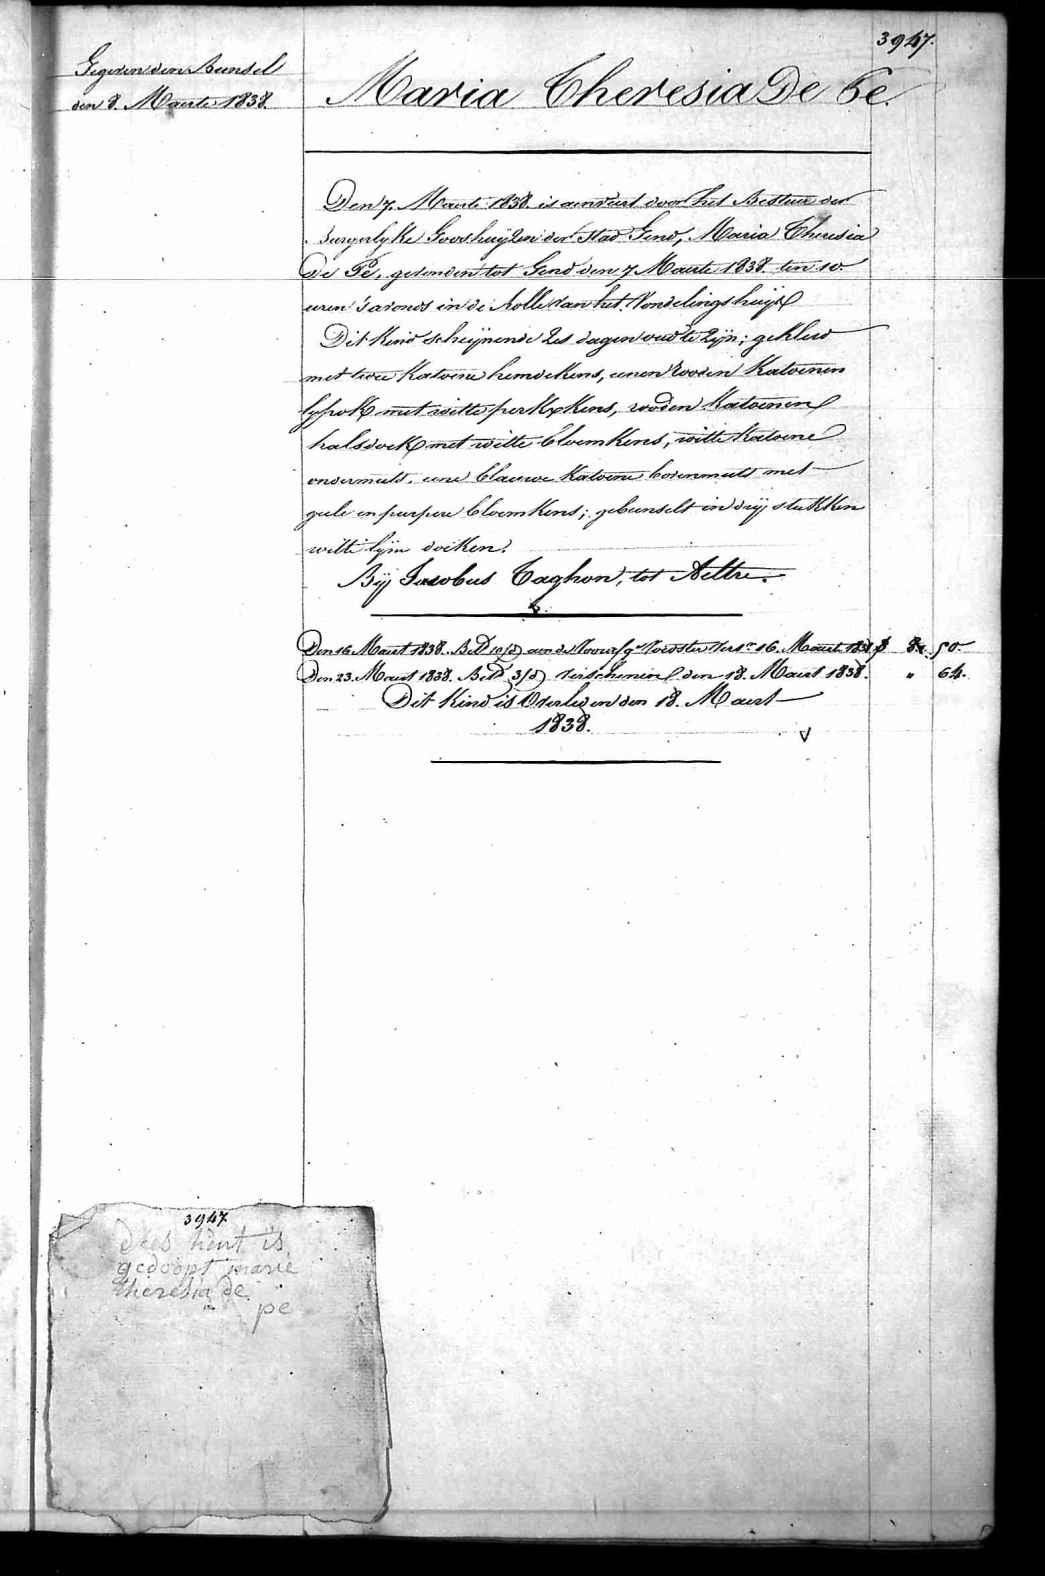 3947.
Gegeven den Bunsel
den 8. Maerte 1838.
Maria Theresia De Pe.
Den 7. Maerte 1838. is aenveert door het Bestuer der
burgerlyke Godshuijzen der Stad Gend, Maria Theresia
De Pé, gevonden tot Gend den 7 Maerte 1838. ten 10.
uren 's avonds in de Rolle van het Vondelingshuijs
Dit kind scheijnende zes dagen oud te zijn; gekleed
met twee katoene hemdekens, eenen rooden katoenen
lyfrok met witte perkxkens, rooden katoenen
halsdoek met witte bloemkens, witte katoene
ondermuts, eene blauwe katoene bovenmuts met
geele en purpere bloemkens; gebunselt in drij stukken
witte lijn doeken.
Bij Jacobus Taghon, tot Aeltre.
Den 16 Maert 1838. Betd 10/d) aen de Voorsz. Maerte 1838 8. 50.
Den 23. Maert 1838. Betd 3/d) verschenen den 18. Maert 1838. " 64.
Dit kind is Overleden den 18. Maert
1838.
3947
Dees kint is
gedoopt marie
theresia de
pe